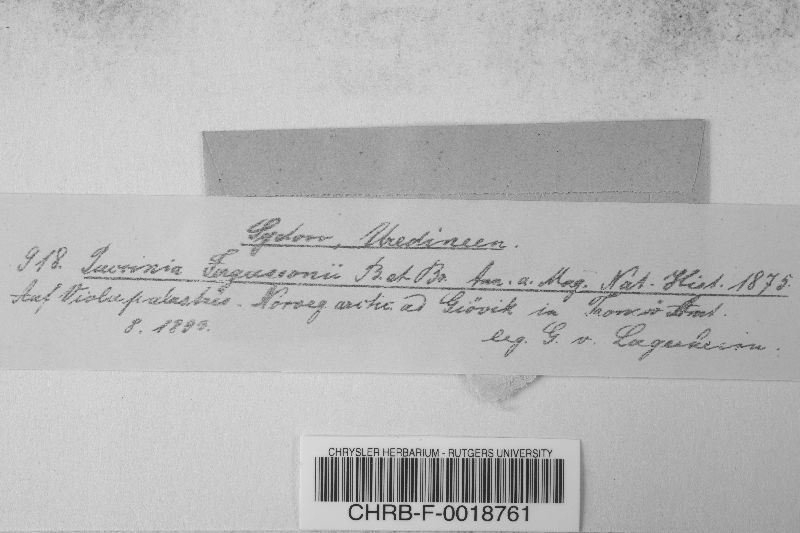 Sydow, Uredineen.
918. Puccinia Fergussonii B. et Br. Ann. a. Mag. Nat. Hist. 1875.
Auf Viola palustris. Norveg arctic. ad Giövik in Tromsö Amt.
8. 1893. leg. G. v. Lagerheim.
CHRYSLER HERBARIUM - RUTGERS UNIVERSITY
CHRB-F-0018761